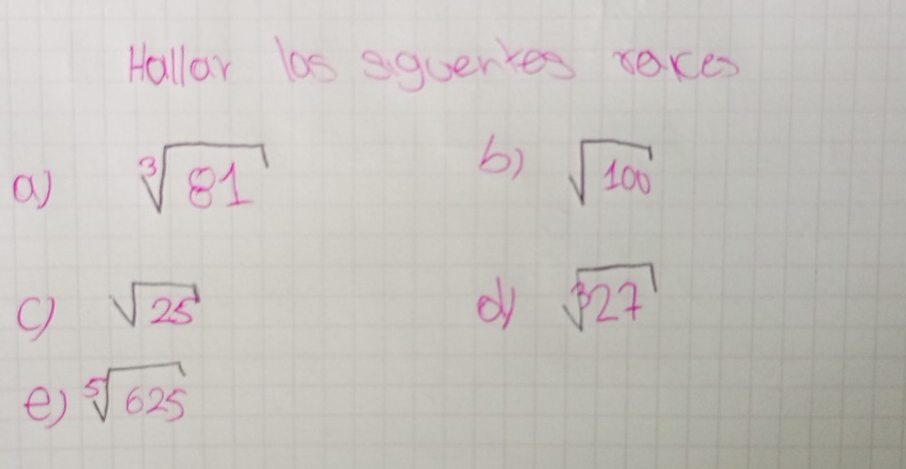 Hallar las siguentes raices
a) ∛81 b) √100
c) √25 d) ∛27
e) ⁵√625